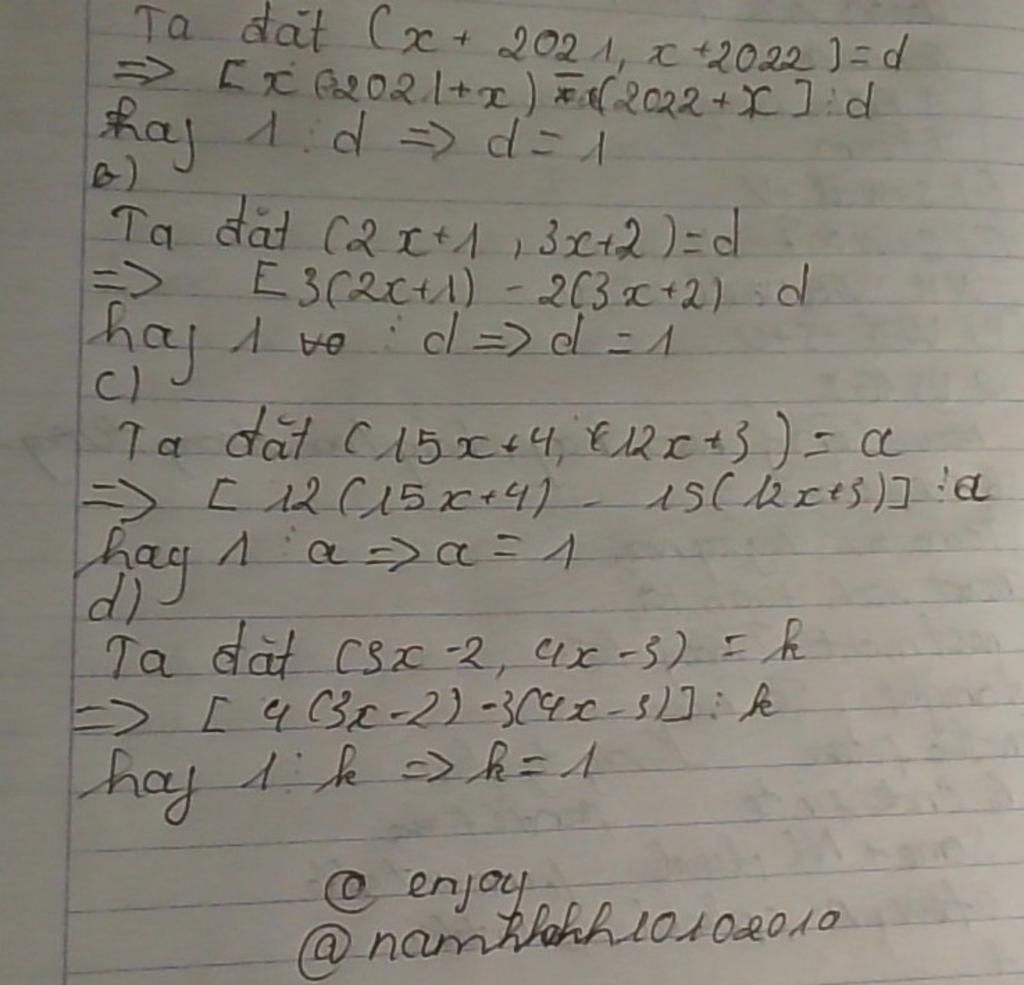 Ta đặt (x + 2021, x+2022) = d
=> [x (2021+x) - x(2022+x] ⋮ d
hay 1 ⋮ d => d = 1
b)
Ta đặt (2x+1, 3x+2) = d
=> [3(2x+1) - 2(3x+2) ⋮ d
hay 1 ⋮ d => d = 1
c)
Ta đặt (15x+4, (12x+3) = a
=> [12(15x+4) - 15(12x+3)] ⋮ a
hay 1 ⋮ a => a = 1
d)
Ta đặt (3x-2, 4x-3) = k
=> [4(3x-2) -3(4x-3)] ⋮ k
hay 1 ⋮ k => k = 1
@ enjoy